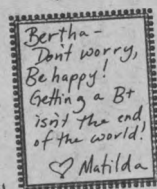 Bertha –
Don't worry,
Be happy!
Getting a B+
isn't the end
of the world!
♡ Matilda